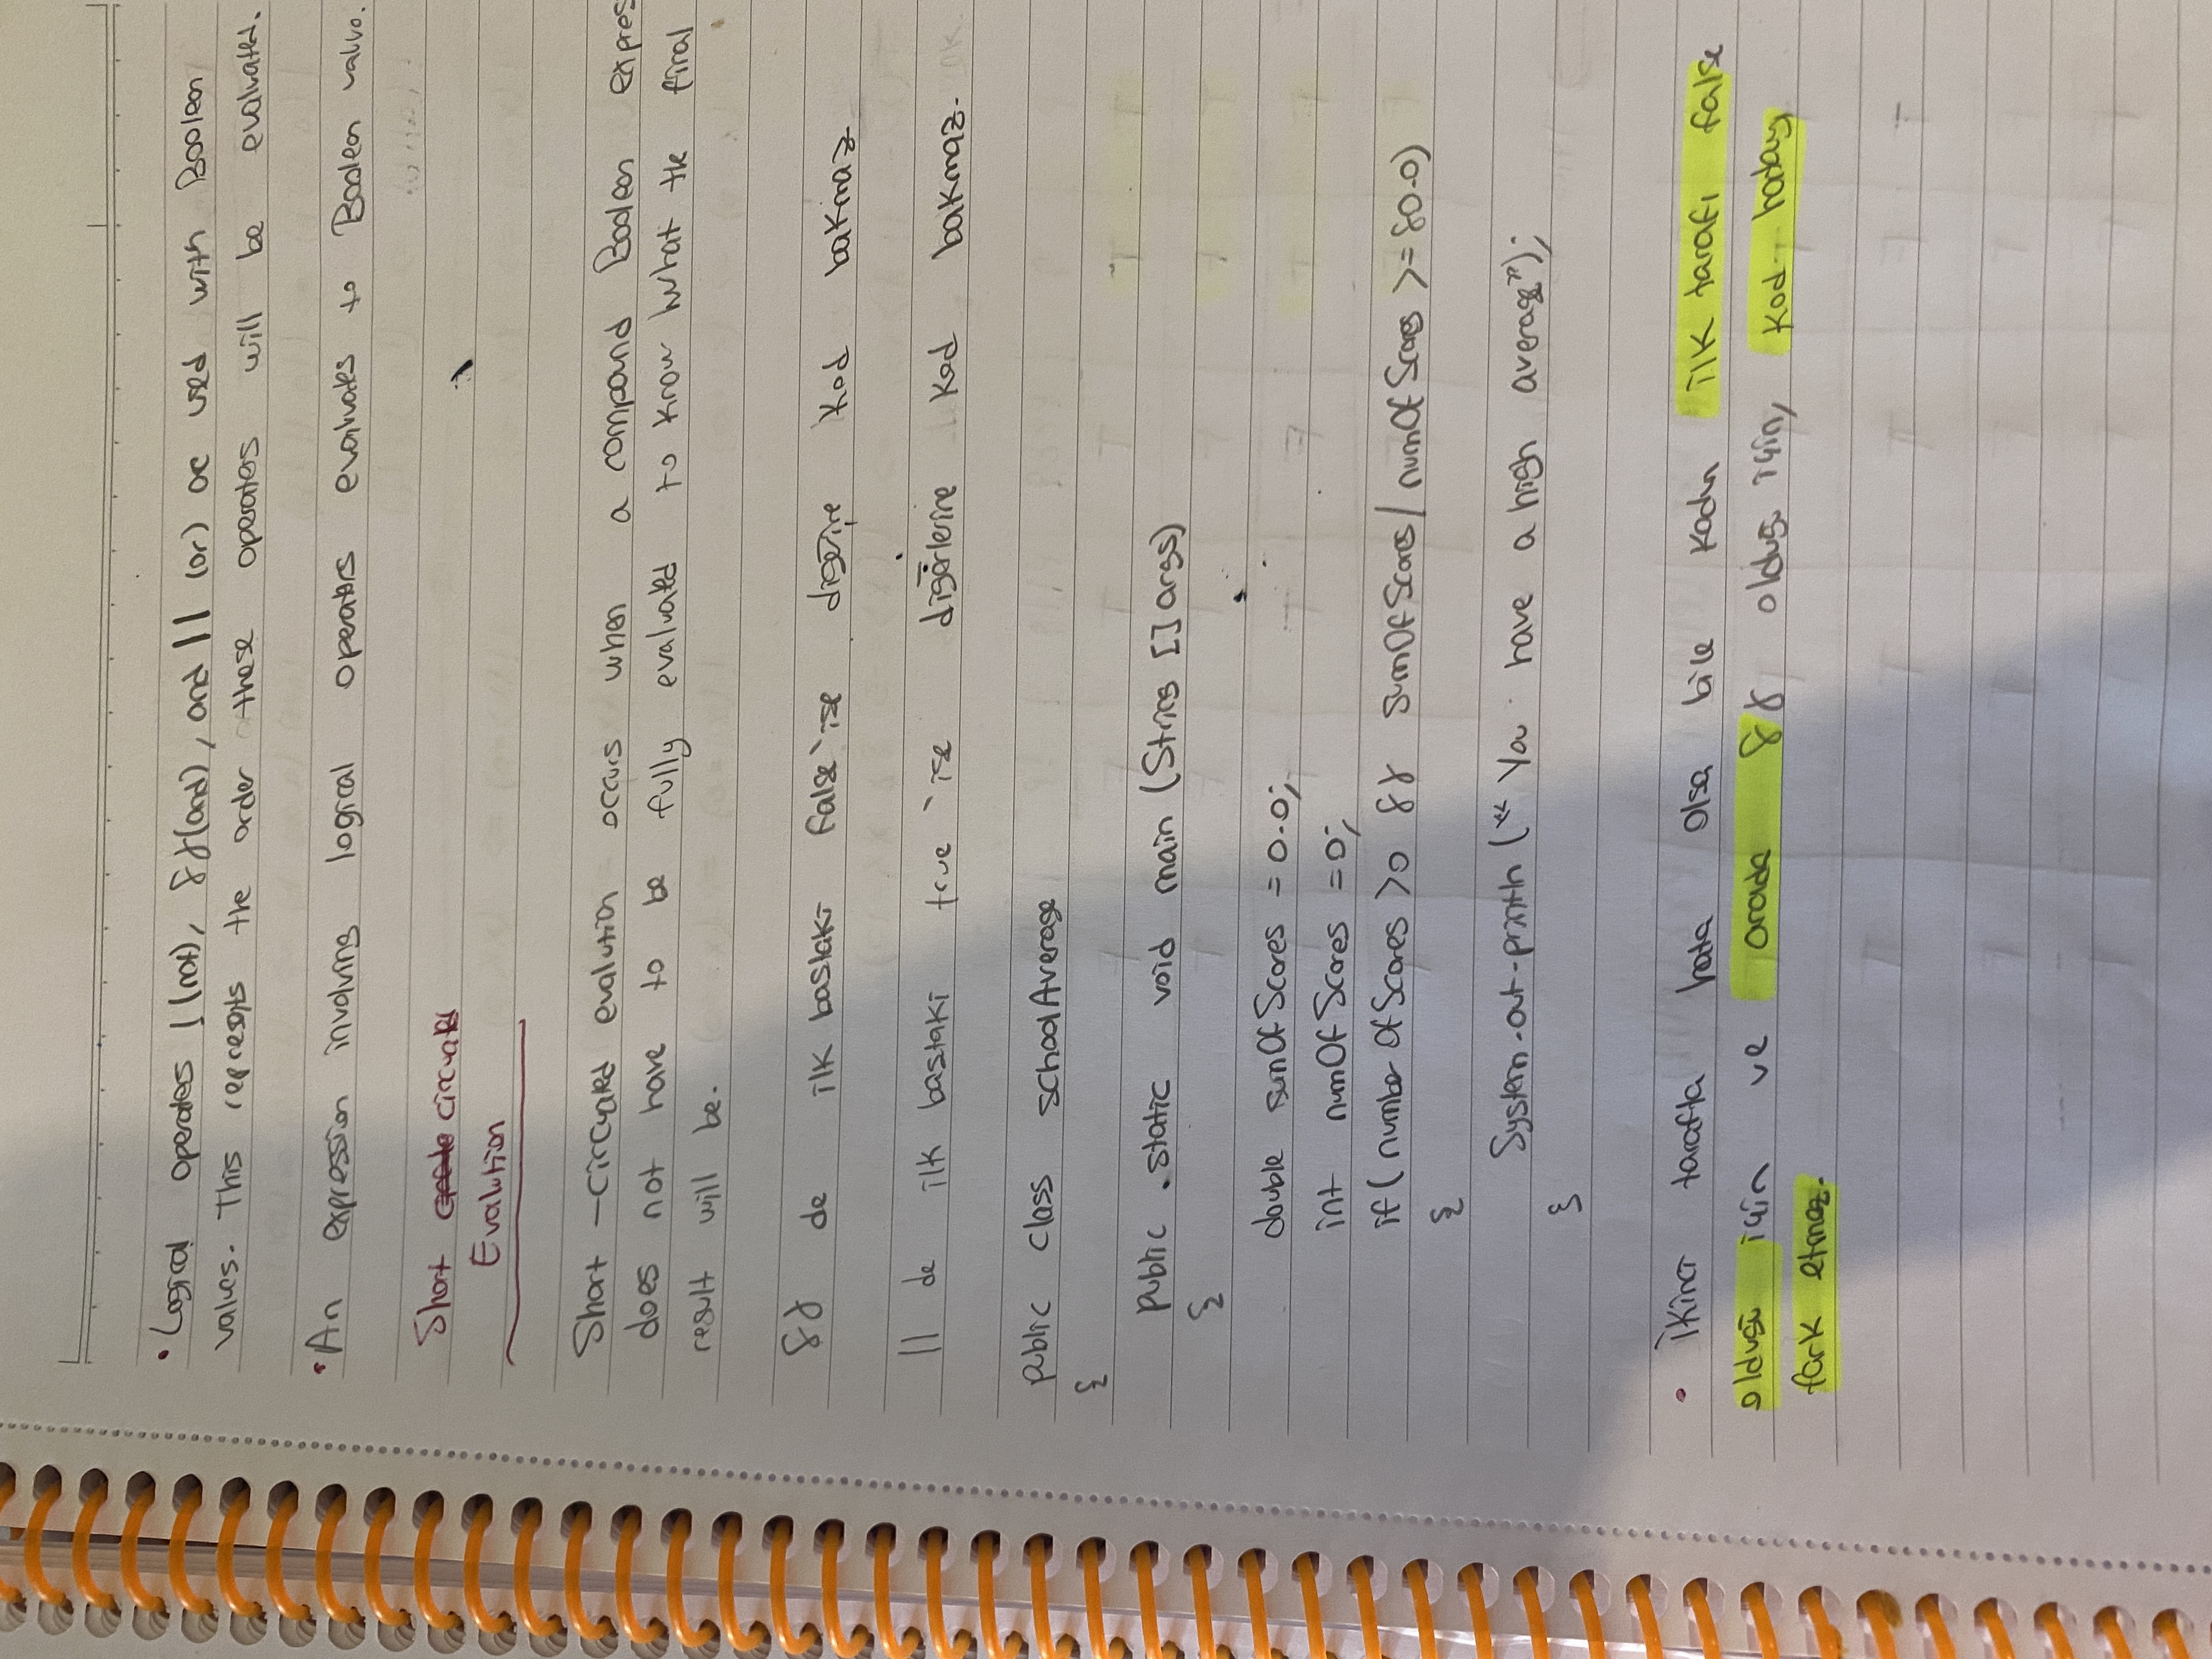 • Logical operaters ! (not), &&(and), and || (or) are used with Boolean
values. This represents the order these operators will be evaluated.
• An expression involving logical operators evaluates to Boolean value.
Short circuated
Evalution
Short-circuated evalution occurs when a compound Boolean expres
does not have to be fully evaluated to know what the final
result will be.
&& de ilk bastaki false ise digerine kod bakmaz
|| de ilk bastaki true ise digerlerine kod bakmaz.
public class schoolAverage
{
public static void main (String [] args)
{
double sumOfScores = 0.0;
int numOfScores = 0;
if ( numberOfScores >0 && sumOfScores / numOfScores >= 80.0)
{
System.out.println (" You have a high average");
}
• İkinci tarafta hata olsa bile kodun ilk tarafı false
olduğu için ve arada && olduğu için, kod hatayı
fark etmez.